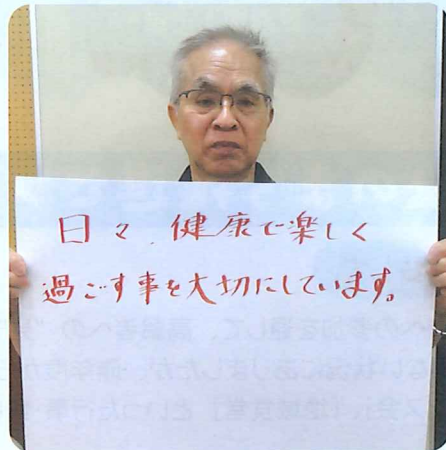 日々、健康で楽しく
過ごす事を大切にしています。